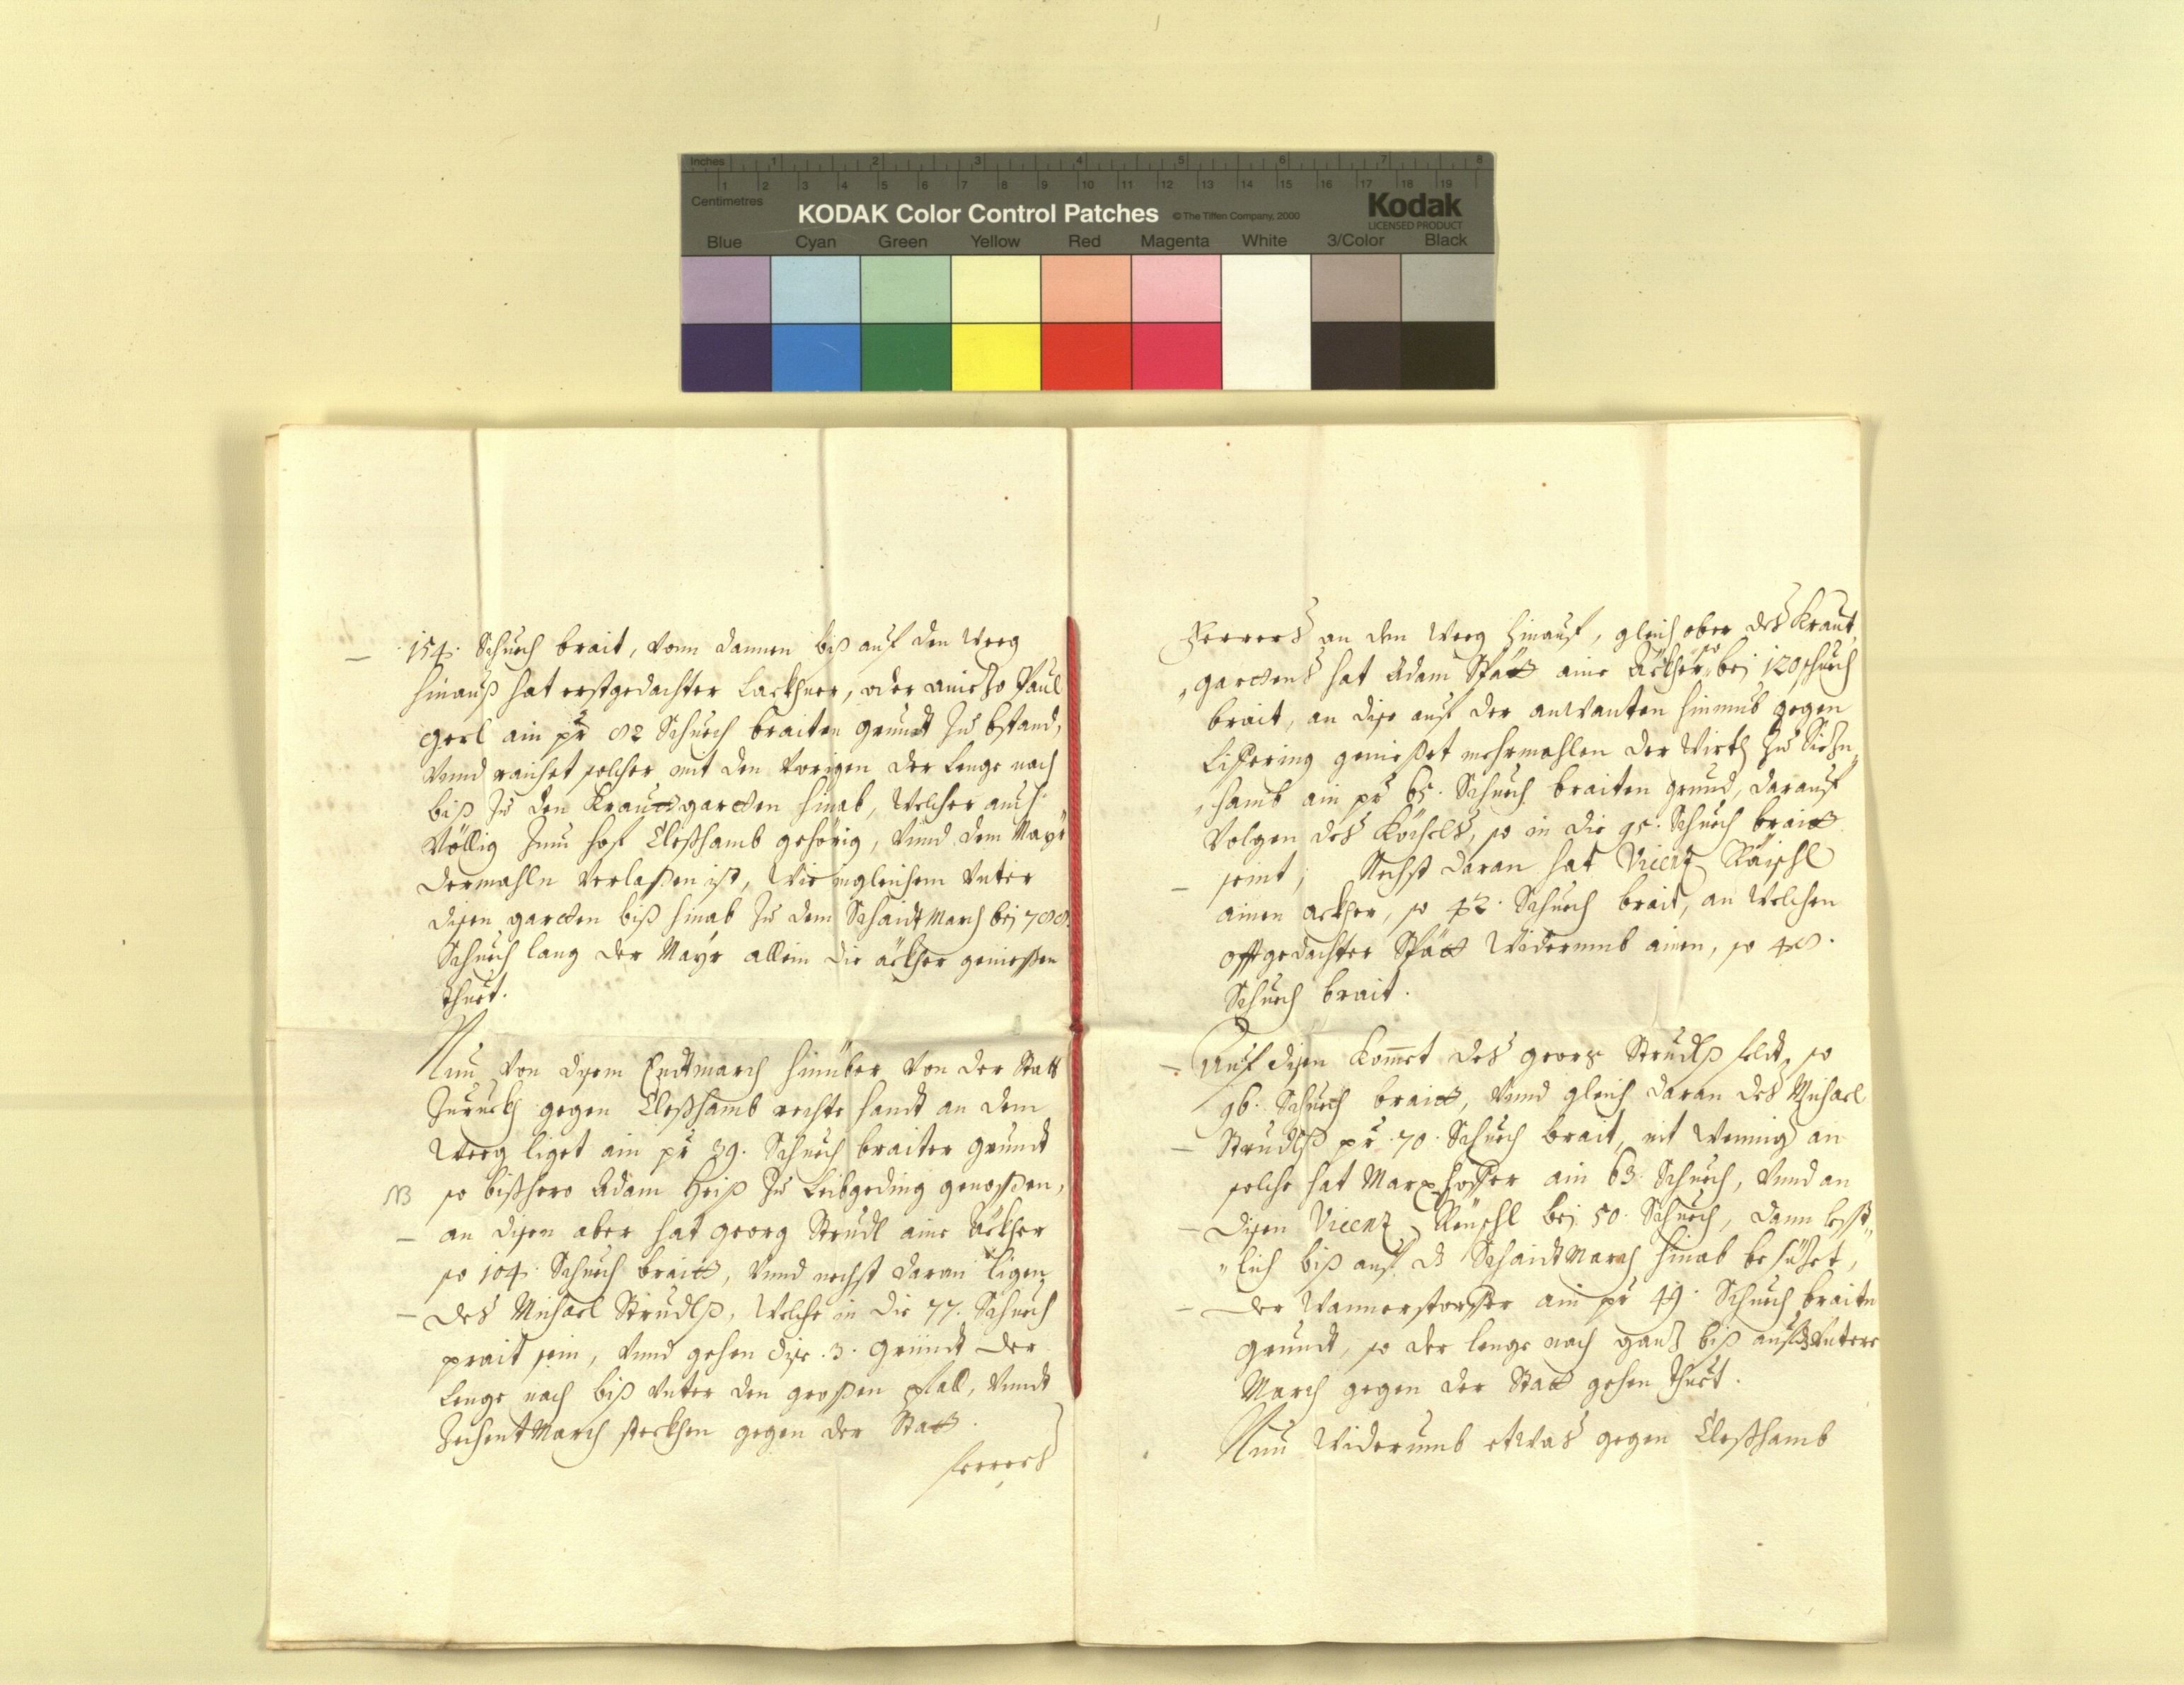 Inches 1 2 3 4 5 6 7 8
1 2 3 4 5 6 7 8 9 10 11 12 13 14 15 16 17 18 19
Centimetres
KODAK Color Control Patches © The Tiffen Company, 2000 Kodak
LICENSED PRODUCT
Blue Cyan Green Yellow Red Magenta White 3/Color Black
– 154. Schuech brait, vonn dannen biß auf den Weeg
hinauß hat erstgedachter Lackhner, oder aniezo Paul
Gerl ain pr 82 Schuech braiten grundt zu bstand,
vnnd raichet solcher mit den vorigen der lenge nach
biß zu den Krauttgartten hinab, welcher auch
völlig zum hof Cleßhamb gehörig, vnnd dem Mayr
dermahln verlaßen ist, wie ingleichem vnter
disen gartten biß hinab zu dem Schaidt March bej 788.
Schuech lang der Mayr allein die äckher genießen
thuet.
Nun von disem Endtmarch hinüber von der Statt
zuruckh gegen Cleßhamb rechte handt an dem
Weeg liget ain pr 39. Schuech braiter grundt
NB so bißhero Adam Heiß zu Leibgeding genoßen,
– an disem aber hat Georg Strudl aine Äckher
so 104. Schuech braitt, vnnd nechst daran ligen
– des Michael Strudlß, welche in die 77. Schuech
prait sein, vnnd gehen dise .3. gründt der
Lenge nach biß vnter den großen pfall, vnndt
Zechent March steckhen gegen der Statt.
ferrers
Ferrers an dem Weeg hinauf, gleich ober des Kraut
„garttens hat Adam Spätt aine Äckher, so bej 120 schuech
brait, an dise auf der anwanten hinumb gegen
Lifering genießet mehrmahlen der Wirth zu Siezn„
„hamb ain pr 65. Schuech braiten grund, darauf
volgen des Köchels, so in die 95. Schuech braitt
– seint; Nechst daran hat Vicenz Räischl
ainen ackher, so 42. Schuech brait, an welchen
offtgedachter Spätt widerumb ainen, so 48.
Schuech brait.
– Auf disen kommet des Georg Strudlß feldt, so
96. Schuech braitt, vnnd gleich daran des Michael
– Strudlß pr 70. Schuech brait, nit wennig an
solche hat Marx hoffer ain 63. Schuech, vnnd an
– disen Vicenz Räuschl bej 50. Schuech, dann lesst„
„lich biß auf dz Schaidt March hinab besizet,
– der Wannerstorffer ain pr 49. Schuech braiten
grundt, so der lenge nach ganz biß auf dz vntere
March gegen der Statt gehen thuet.
Nun widerumb etwas gegen Cleßhamb